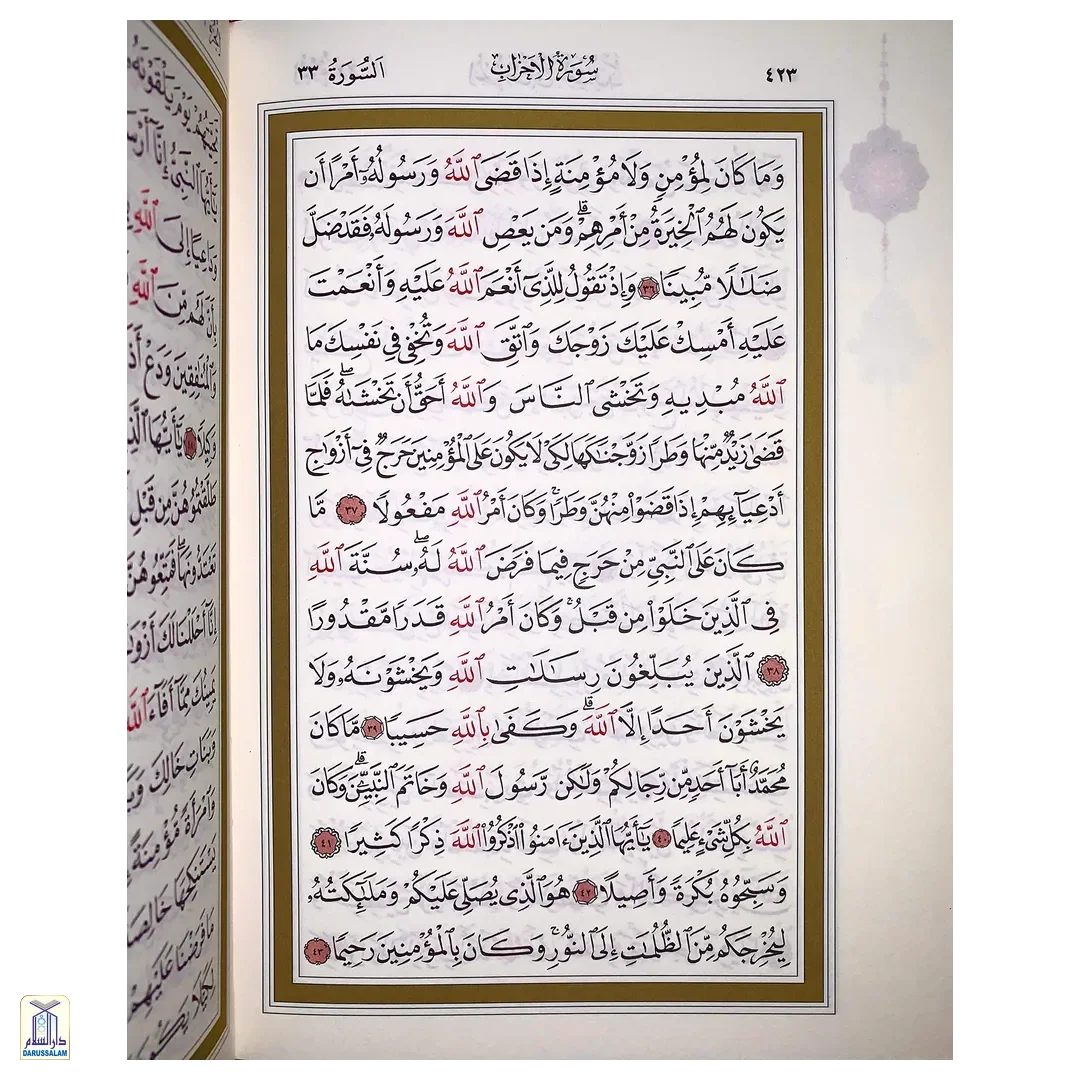 ٤٢٣ سُورَةُ الْأَحْزَابِ السُّورَةُ ٣٣
وَمَا كَانَ لِمُؤْمِنٍ وَلَا مُؤْمِنَةٍ إِذَا قَضَى ٱللَّهُ وَرَسُولُهُۥٓ أَمْرًا أَن
يَكُونَ لَهُمُ ٱلْخِيَرَةُ مِنْ أَمْرِهِمْ ۗ وَمَن يَعْصِ ٱللَّهَ وَرَسُولَهُۥ فَقَدْ ضَلَّ
ضَلَـٰلًا مُّبِينًا ٣٦ وَإِذْ تَقُولُ لِلَّذِىٓ أَنْعَمَ ٱللَّهُ عَلَيْهِ وَأَنْعَمْتَ
عَلَيْهِ أَمْسِكْ عَلَيْكَ زَوْجَكَ وَٱتَّقِ ٱللَّهَ وَتُخْفِى فِى نَفْسِكَ مَا
ٱللَّهُ مُبْدِيهِ وَتَخْشَى ٱلنَّاسَ وَٱللَّهُ أَحَقُّ أَن تَخْشَىٰهُ ۖ فَلَمَّا
قَضَىٰ زَيْدٌ مِّنْهَا وَطَرًا زَوَّجْنَـٰكَهَا لِكَىْ لَا يَكُونَ عَلَى ٱلْمُؤْمِنِينَ حَرَجٌ فِىٓ أَزْوَٰجِ
أَدْعِيَآئِهِمْ إِذَا قَضَوْا۟ مِنْهُنَّ وَطَرًا ۚ وَكَانَ أَمْرُ ٱللَّهِ مَفْعُولًا ٣٧ مَّا
كَانَ عَلَى ٱلنَّبِىِّ مِنْ حَرَجٍ فِيمَا فَرَضَ ٱللَّهُ لَهُۥ ۖ سُنَّةَ ٱللَّهِ
فِى ٱلَّذِينَ خَلَوْا۟ مِن قَبْلُ ۚ وَكَانَ أَمْرُ ٱللَّهِ قَدَرًا مَّقْدُورًا
٣٨ ٱلَّذِينَ يُبَلِّغُونَ رِسَـٰلَـٰتِ ٱللَّهِ وَيَخْشَوْنَهُۥ وَلَا
يَخْشَوْنَ أَحَدًا إِلَّا ٱللَّهَ ۗ وَكَفَىٰ بِٱللَّهِ حَسِيبًا ٣٩ مَّا كَانَ
مُحَمَّدٌ أَبَآ أَحَدٍ مِّن رِّجَالِكُمْ وَلَـٰكِن رَّسُولَ ٱللَّهِ وَخَاتَمَ ٱلنَّبِيِّـۧنَ ۗ وَكَانَ
ٱللَّهُ بِكُلِّ شَىْءٍ عَلِيمًا ٤٠ يَـٰٓأَيُّهَا ٱلَّذِينَ ءَامَنُوا۟ ٱذْكُرُوا۟ ٱللَّهَ ذِكْرًا كَثِيرًا ٤١
وَسَبِّحُوهُ بُكْرَةً وَأَصِيلًا ٤٢ هُوَ ٱلَّذِى يُصَلِّى عَلَيْكُمْ وَمَلَـٰٓئِكَتُهُۥ
لِيُخْرِجَكُم مِّنَ ٱلظُّلُمَـٰتِ إِلَى ٱلنُّورِ ۚ وَكَانَ بِٱلْمُؤْمِنِينَ رَحِيمًا ٤٣
دار السلام
DARUSSALAM